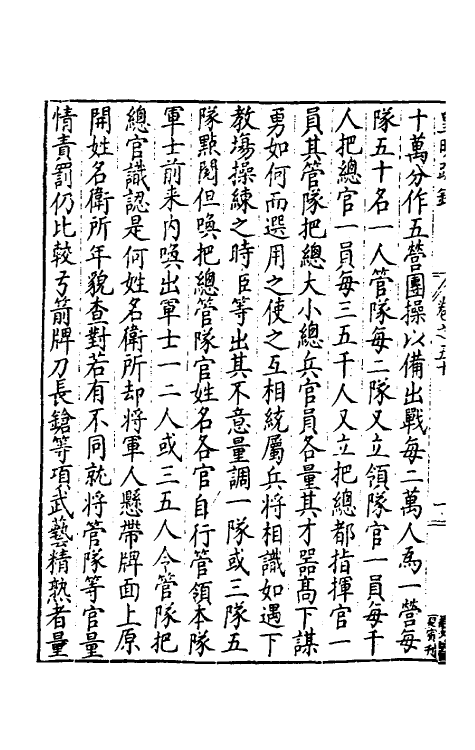 十萬分作五營團操以備出戰每二萬人爲一營每
隊五十名一人管隊每二隊又立領隊官一員每千
人把總官一員每三五千人又立把總都指揮官一
員其管隊把總大小總兵官員各量其才器高下謀
勇如何而選用之使之互相統屬兵將相識如遇下
教塲操練之時臣等出其不意量調一隊或三隊五
隊㸃閱但喚把總管隊官姓名各官自行管領本隊
軍士前来内喚出軍士一二人或三五人令管隊把
總官識認是何姓名衛所却將軍人懸帶牌面上原
開姓名衛所年貌查對若有不同就將管隊等官量
情責罰仍比較弓箭牌刀長鎗等項武藝精熟者量